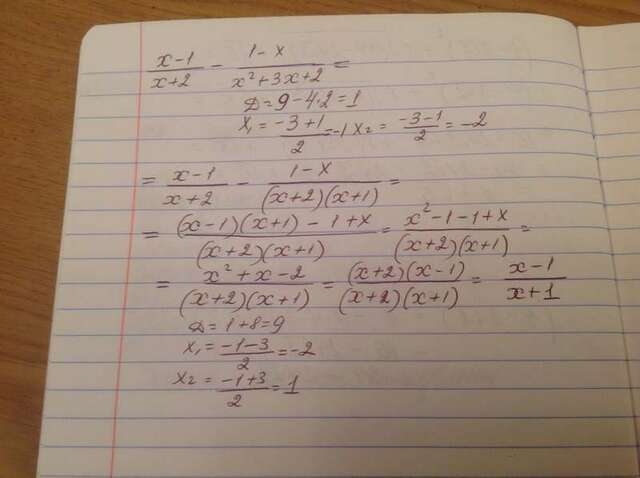 (x-1)/(x+2) - (1-x)/(x²+3x+2) =
D = 9 - 4·2 = 1
x₁ = (-3+1)/2 = -1 x₂ = (-3-1)/2 = -2
= (x-1)/(x+2) - (1-x)/((x+2)(x+1)) =
= ((x-1)(x+1) - 1+x)/((x+2)(x+1)) = (x²-1-1+x)/((x+2)(x+1)) =
= (x²+x-2)/((x+2)(x+1)) = ((x+2)(x-1))/((x+2)(x+1)) = (x-1)/(x+1)
D = 1+8 = 9
x₁ = (-1-3)/2 = -2
x₂ = (-1+3)/2 = 1